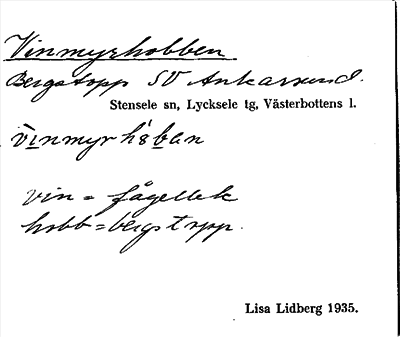 Vinmyrhobben
Bergstopp SV Ankarsund.
Stensele sn, Lycksele tg, Västerbottens l.
vinmyr håban
vin = fågellek
hobb = bergstopp.
Lisa Lidberg 1935.